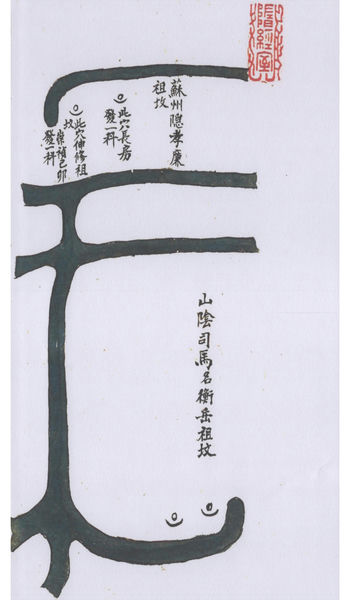 蘇州隱孝廉
祖坟
此穴長房
發一科
此穴伸修祖
坟
崇禎己卯
發一科
山陰司馬名衡岳祖坟